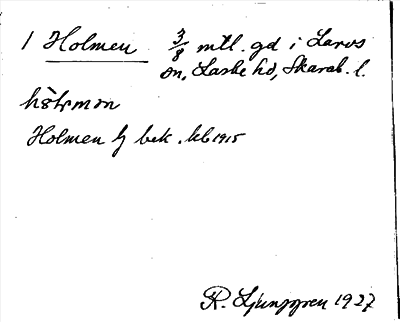 1 Holmen 3/8 mtl. gd i Larvs
sn, Laske hd, Skarab. l.
hòlmən
Holmen h bek. kb 1915
R. Ljunggren 1927